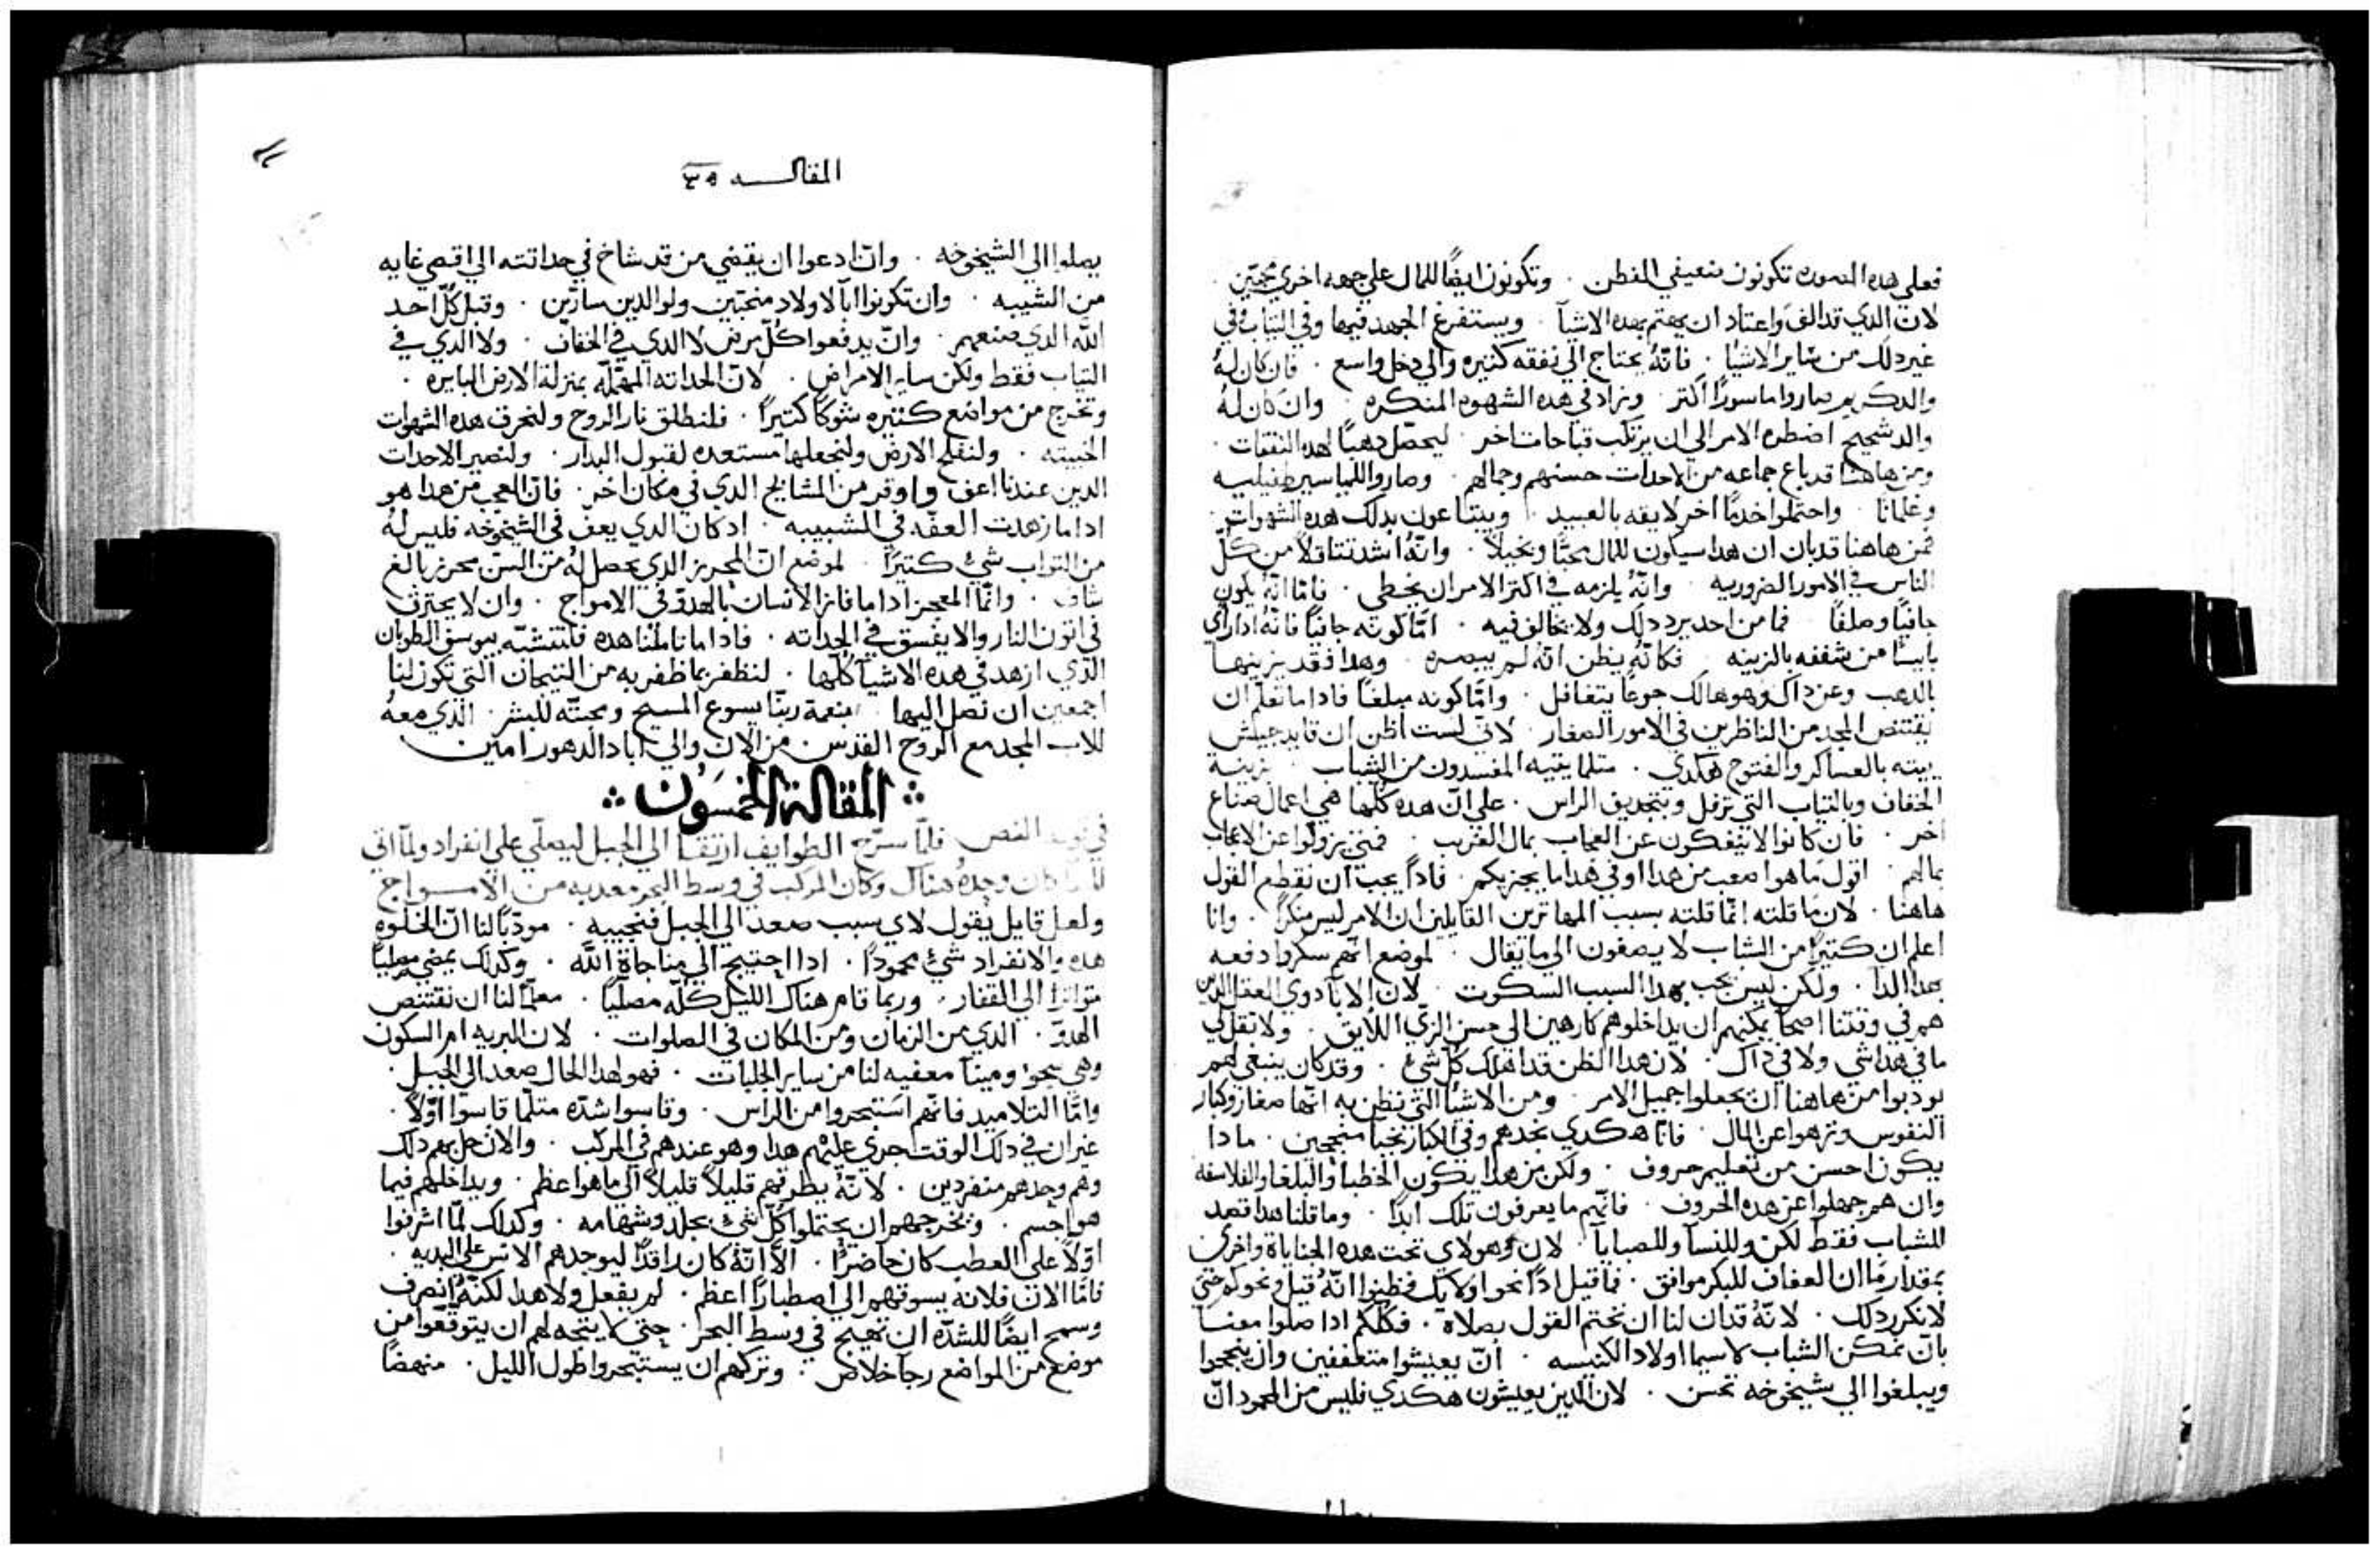 فعلي هده الصوره تكونون ضعيفي الفطن . وتكونون ايضًا للمال علي جهه اخري محبّين .
لانّ الدي قد الف واعتاد ان يهتم بهده الاشيآ . ويستفرغ الجهد فيها وفي التياب وفي
غير دلك من ساير الاشيا . فانّهُ يحتاج الي نفقه كتيره والي دخل واسع . فان كان لهُ
والد كريم صار واماسورًا اكتر . وزاد في هده الشهوه المنكره . وان كان لهُ
والد شحيح اضطره الامر الي ان يرتكب قباحات اخر . ليحصّل دهبًا لهده النفقات .
ومن هاهنا قد باع جماعه من الاحداث حسنهم وجمالهم . وصاروا للمياسير طفيليه
وغلمانا . واحتملوا خدمًا اخر لايقه بالعبيد . ويبتاعون بدلك هده الشهوات .
فمن هاهنا قد بان ان هدا سيكون للمال محبًّا وبخيلاً . وانّهُ اشد تتاقلاً من كلّ
الناس في الامور الضروريه . وانّهُ يلزمه في اكتر الامر ان يخطي . فامّا انّهُ يكون
جافيًا وصلفًا . فما من احد يرد دلك ولا يخالف فيه . امّا كونه جافيًا فانّهُ ادا راي
بايسًا من شغفه بالزينه . فكانّهُ يظن انّهُ لم يبصره . وهدا فقد يزينها
بالدهب وعن داك وهو هالك جوعًا يتغافل . وامّا كونه صلفًا فادا ما تعلّم ان
يقتنص المجد من الناظرين في الامور الصغار . لانّي لست اظن ان قايد جيش
بيته بالعساكر والفتوح هكدي . متلما يتيه المفسدون من الشباب . بزينة
الخفاف وبالتياب التي ترفل وبتجديق الراس . علي انّ هده كلّها هي اعمال صناع
اخر . فان كانوا لا ينفكون عن العجاب بمال الغريب . فمتي يزولوا عن الاعجاب
بمالهم . اقول ما هو اصعب من هدا او في هدا ما يجزيكم . فادًا يجب ان نقطع القول
هاهنا . لان ما قلته انّما قلته بسبب المهاترين القايلين ان الامر ليس منكرًا . وانا
اعلم ان كتيرًا من الشاب لا يصغون الي ما يقال . لموضع انهم سكروا دفعه
بهدا الدا . ولكن ليس يجب بهدا السبب السكوت . لان الابآ دوي العقل الدين
هم في وقتنا اصحآ يمكنهم ان يداخلوهم كارهين الي حسن الزيّ اللايق . ولا تقل لي
ما في هدا شي ولا في داك . لان هدا الظن قد اهلك كلّ شيٍ . وقد كان ينبغي لهم
يودبوا من هاهنا ان يجعلوا جميل الامر . ومن الاشيا التي تظن به انّها صغار وكبار
النفوس ونزهوا عن المال . فانا هكدي نجدهم وفي الكبار نجبا منجحين . ما دا
يكون احسن من تعليم حروف . ولكن من هدا يكون الخطبا والبلغا والفلاسفه
وان هم جهلوا عن هده الحروف . فانّهم ما يعرفون تلك ابدًا . وما قلنا هدا قصد
للشباب فقط لكن وللنسآ وللصبايآ . لان وهولاي تحت هده الجناياة واخري
بمقدار ما ان العفاف للبكر موافق . فما قيل ادًا نحو اولايك فظنوا انّهُ قيل ونحوكم حتي
لا نكرر دلك . لانّهُ قد ان لنا ان نختم القول بصلاة . فكلكم ادا صلوا معنا
بان تمكن الشباب لا سيما اولاد الكنيسه . انّ يعيشوا متعففين وان ينجحوا
ويبلغوا الي شيخوخه تحسن . لان الدين يعيشون هكدي فليس من المحمود انّ
المقالـــه ٤٩
يصلوا الي الشيخوخه . وانّ ادعوا ان يقضي من قد شاخ في حداتته الي اقصي غايه
من الشيبه . وان تكونوا ابآ لاولاد منجبين ولوالدين سارّين . وقبل كلّ احد
اللّه الدي صنعهم . وانّ يدفعوا كلّ مرض لا الدي في الخفاف . ولا الدي في
التياب فقط ولكن ساير الامراض . لانّ الحداته المهمله بمنزلة الارض البايره .
وتخرج من مواضع كتيره شوكًا كتيرًا . فلنطلق نار الروح ولنحرق هده الشهوات
الخبيته . ولنفلح الارض ولنجعلها مستعده لقبول البدار . ولنصير الاحدات
الدين عندنا اعف واوقر من المشايخ الدي في مكان اخر . فانّ العجب من هدا هو
ادا ما زهدت العفّه في الشبيبه . اد كان الدي يعفّ في الشيخوخه فليس لهُ
من التواب شيٌ كتيرًا . لموضع انّ المحرز الدي يحصل لهُ من السنّ محرز بالغ
شاف . وانّما المعجز ادا ما فاز الانسان بالهدوّ في الامواج . وان لا يحترق
في اتون النار والا يفسق في الحداته . فادا ما تاملنا هده فلنتشبّه بيوسف الطوبان
الدي ازهد في هده الاشيآ كلّها . لنظفر بما ظفر به من التيجان التي تكون لنا
اجمعين ان نصل اليها . بنعمة ربّنا يسوع المسيح ومحبتّه للبشر . الدي معهُ
للاب المجد مع الروح القدس . من الان والي اباد الدهور امين
المقالة الخمسَون
فلمّا سرّح الطوايف ارتقا الي الجبل ليصلّي علي انفراد ولمّا اتي
المسا كان وحدهُ هناك وكان المركب في وسط البحر معدبه من الامـــواج
ولعل قايل يقول لاي سبب صعد الي الجبل فنجيبه . مودّبًا لنا انّ الخلوه
هده والانفراد شيٌ محمودًا . ادا احتيج الي مناجاة اللّه . وكدلك يمضي مصليًا
متواترًا الي القفار . وربما قام هناك الليل كلّه مصليًا . معلّمًا لنا ان نقتنص
الهدوّ . الدي من الزمان ومن المكان في الصلوات . لان البريه ام السكون
وهي سجوٌ ومينآ معفيه لنا من ساير الجلبات . فهو لهدا الحال صعد الي الجبل .
وامّا التلاميد فانّهم استبحروا من الراس . وقاسوا شدّه متلما قاسوا اوّلاً .
غير ان في دلك الوقت جري عليهم هدا وهو عندهم في المركب . والان حل بهم دلك
وهم وحدهم منفردين . لانّهُ يطرقهم قليلاً قليلاً الي ما هو اعظم . ويداخلهم فيما
هو اجسم . ويخرجهم ان يحتملوا كلّ شيٍ بجلد وشهامه . وكدلك لمّا اشرفوا
اوّلاً علي العطب كان حاضرًا . الاّ انّهُ كان راقدًا ليوجدهم الانس علي البديه .
فامّا الان فلانه يسوقهم الي اصطبارًا اعظم . لم يفعل ولا هدا لكنّهُ انصرف
وسمح ايضًا للشدّه ان تهيج في وسط البحر . حتي لا يتجه لهم ان يتوقّعوا من
موضع من المواضع رجآ خلاص . وتركهم ان يستبحروا طول الليل . منهضًا